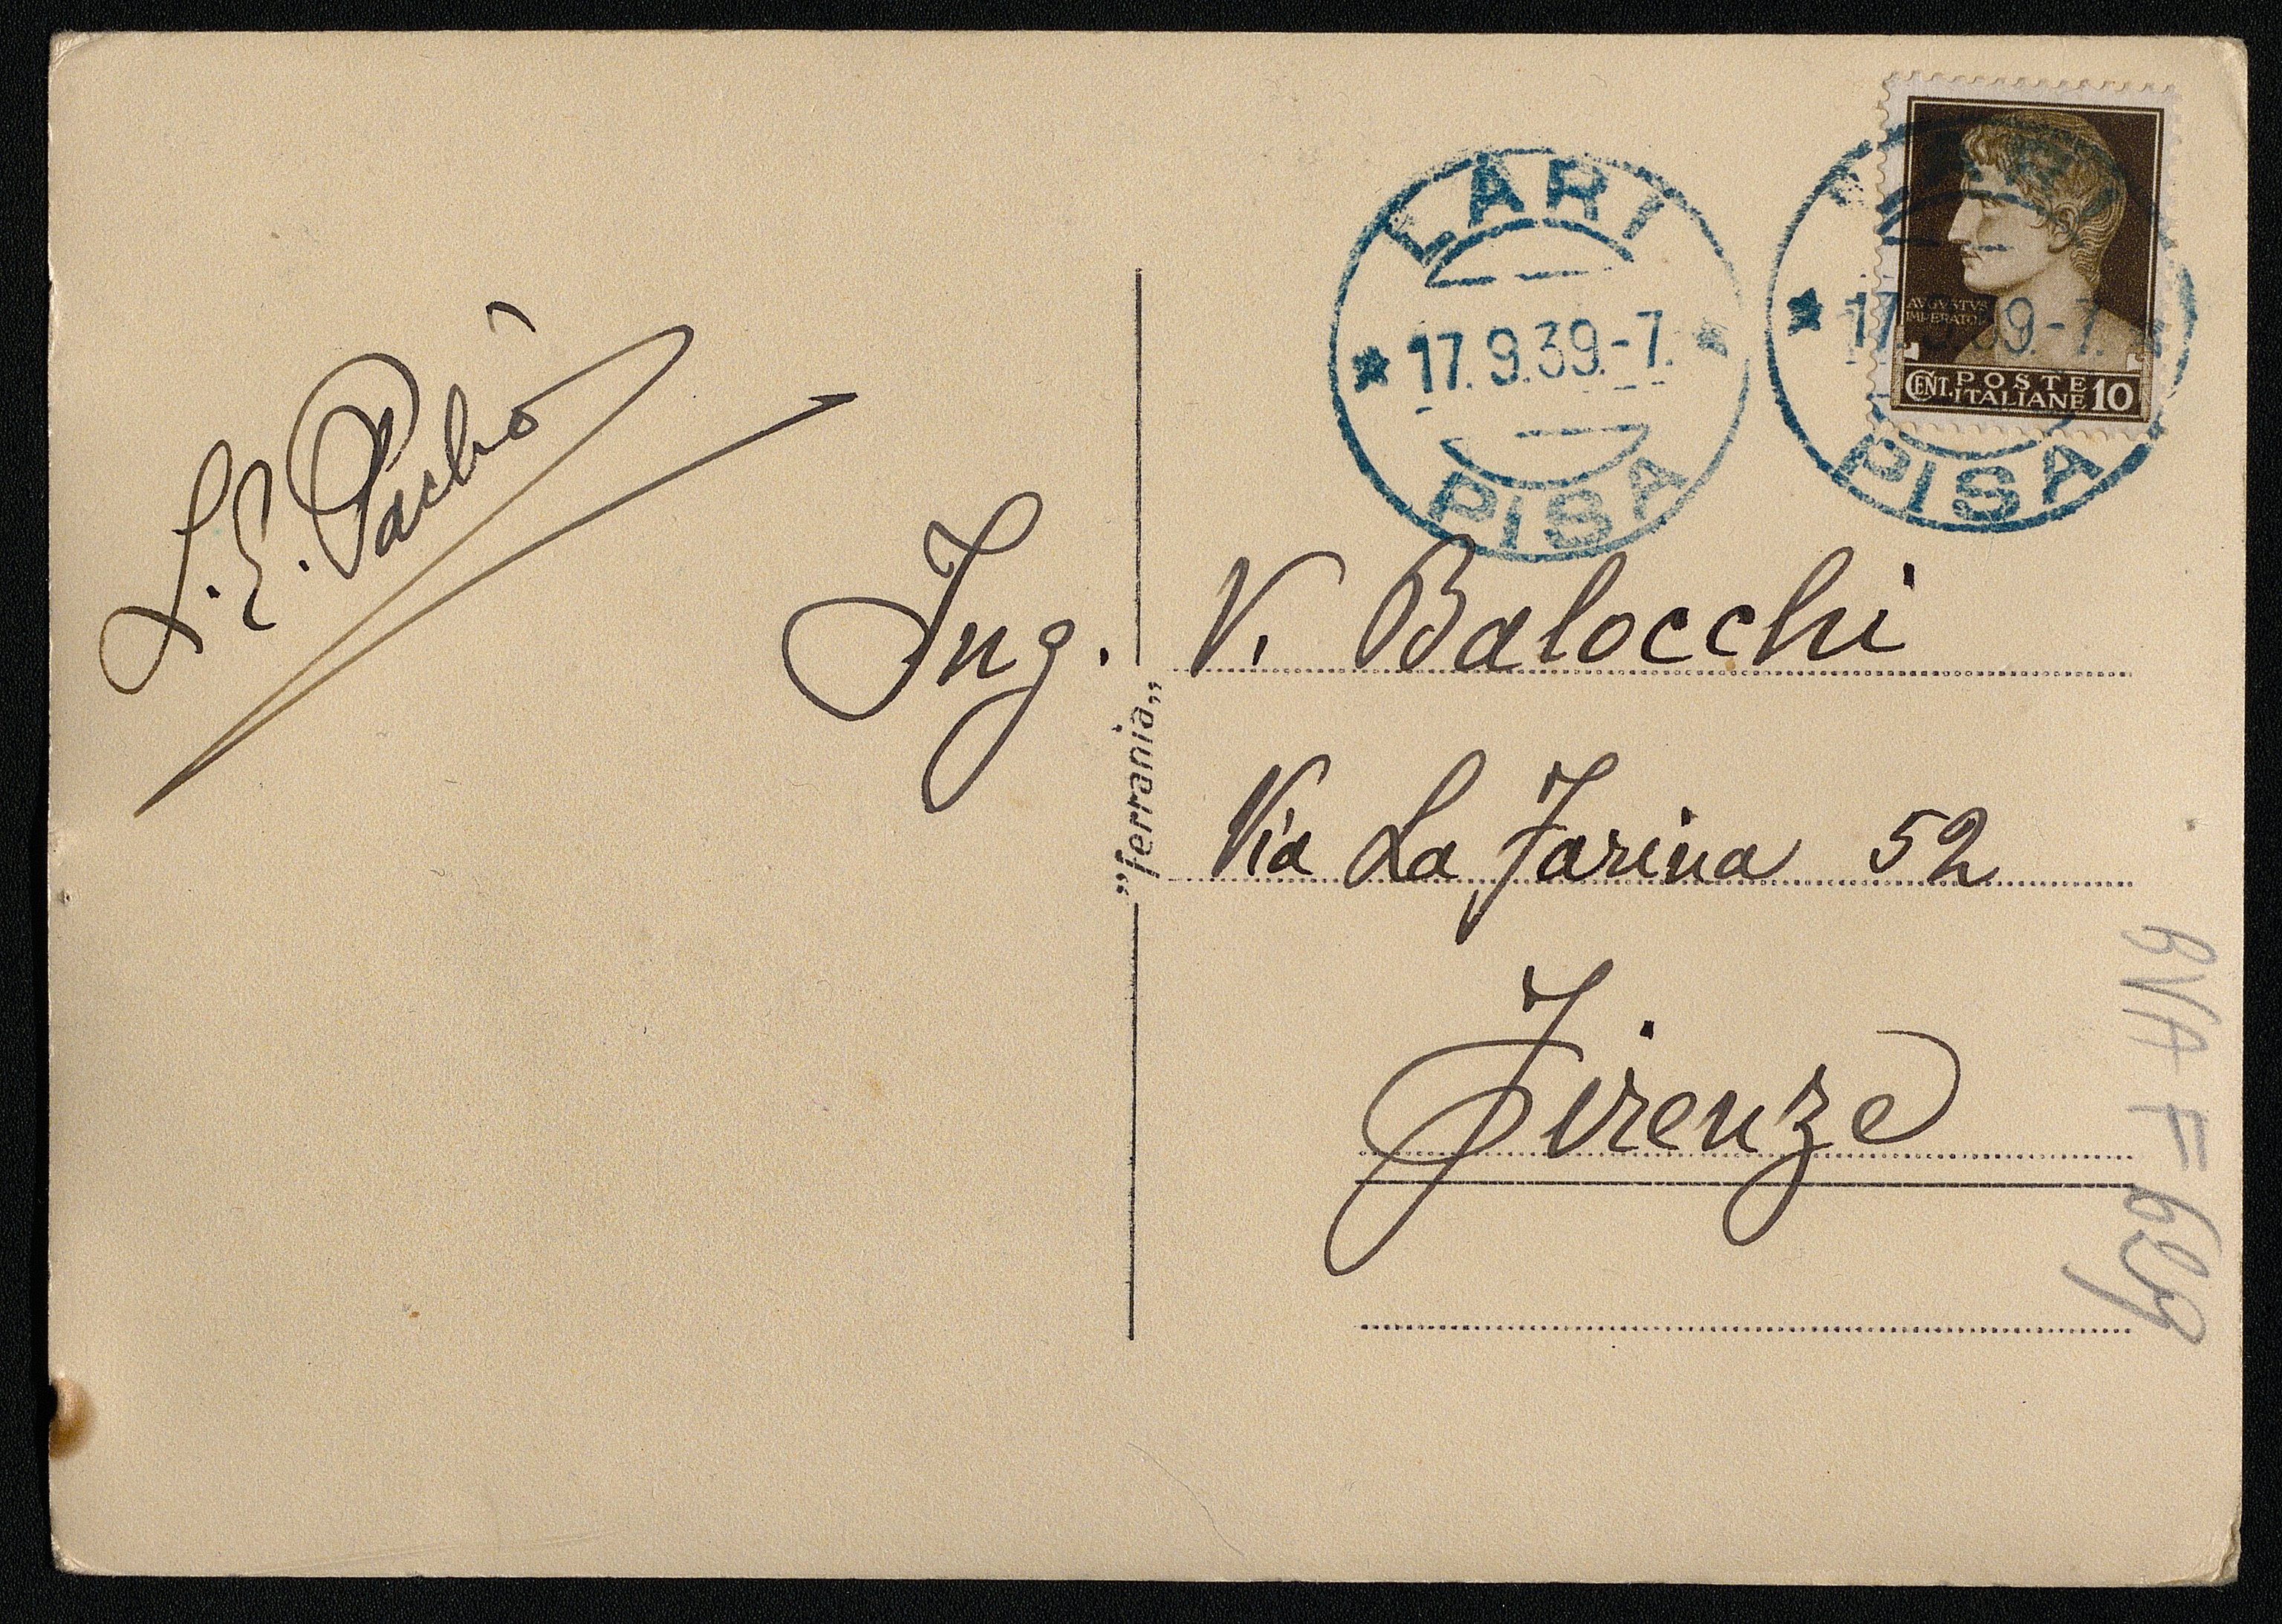 L. E. Pachò
LARI
17.9.39.-7.
PISA
17. 9.39.-7.
PISA
AVGVSTVS
IMPERATOR
CENT. POSTE ITALIANE 10
Ing. V. Balocchi
Via La Farina 52
Firenze
"ferrania"
BVA F 689